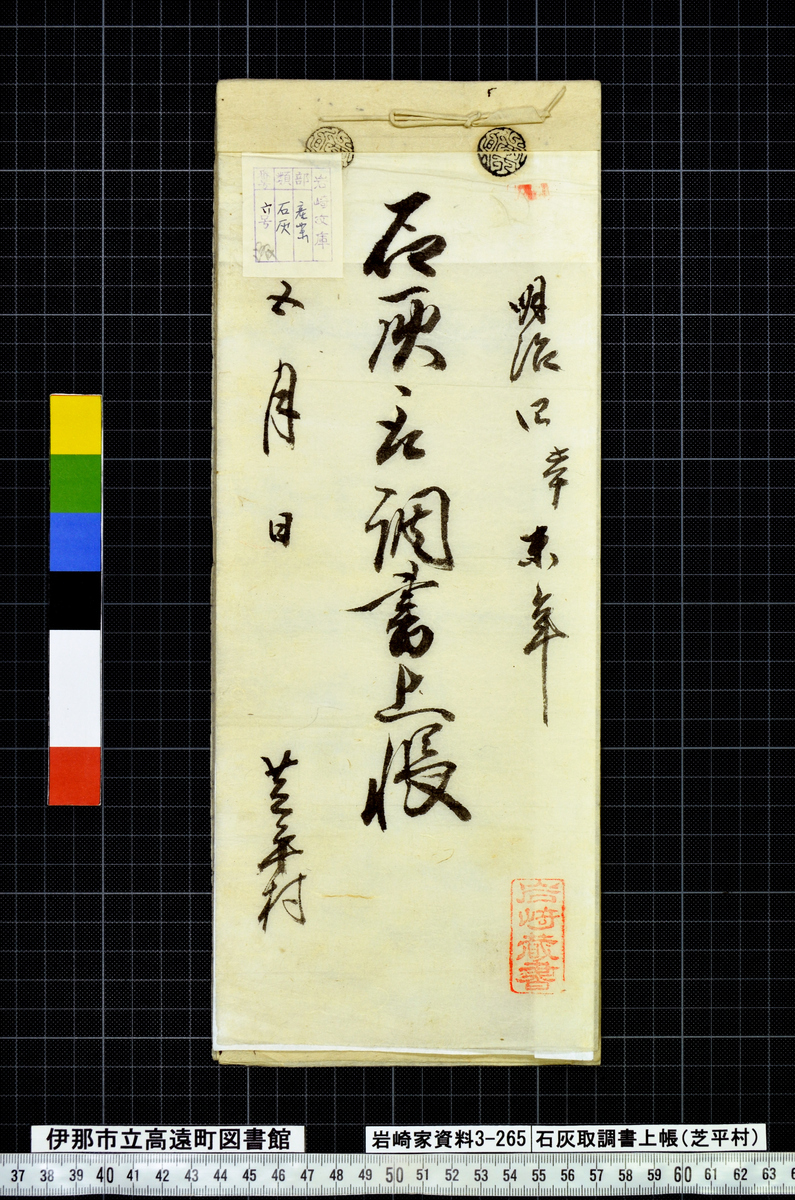 明治四辛未年
石灰取調書上帳
五月日
芝平村
岩崎文庫
部 産業
類 石灰
六号
岩崎蔵書
伊那市立高遠町図書館
岩崎家資料3-265
石灰取調書上帳(芝平村)
37 38 39 40 41 42 43 44 45 46 47 48 49 50 51 52 53 54 55 56 57 58 59 60 61 62 63